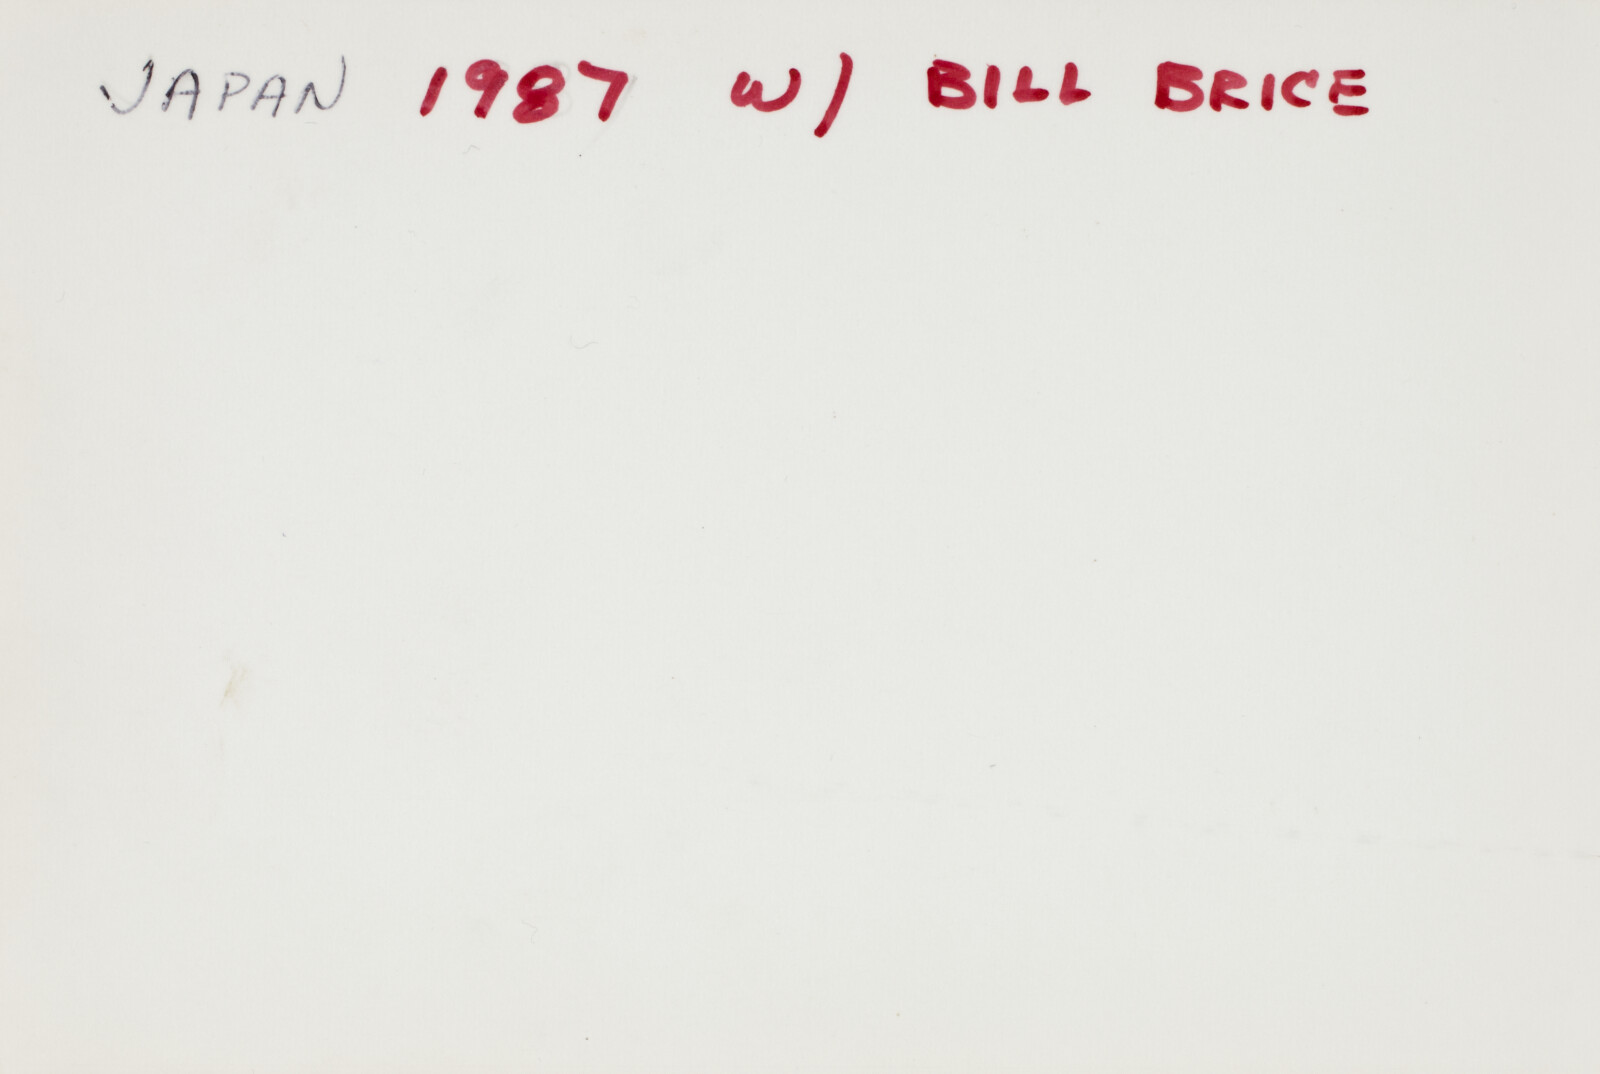 JAPAN 1987 w/ BILL BRICE